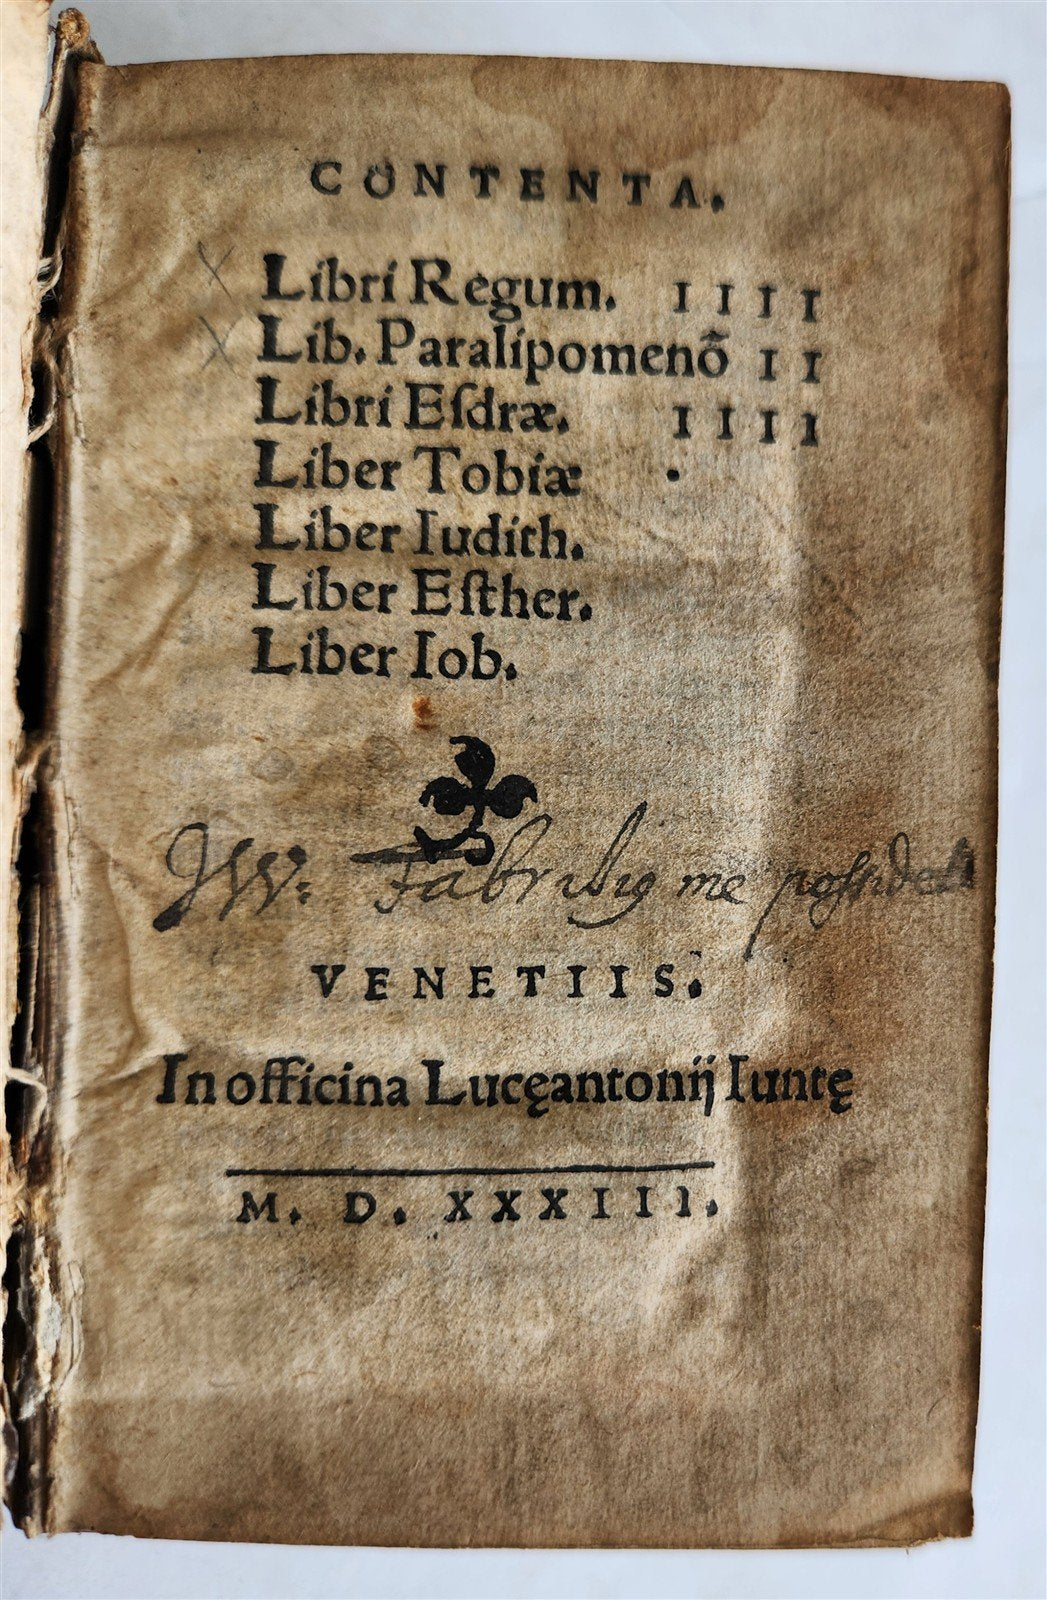 CONTENTA.
Libri Regum. IIII
Lib. Paralipomenõ II
Libri Eſdræ. IIII
Liber Tobiæ .
Liber Iudith.
Liber Eſther.
Liber Iob.
W: Fabritiq me possidet
VENETIIS.
In officina Lucęantonij Iuntę
M. D. XXXIII.